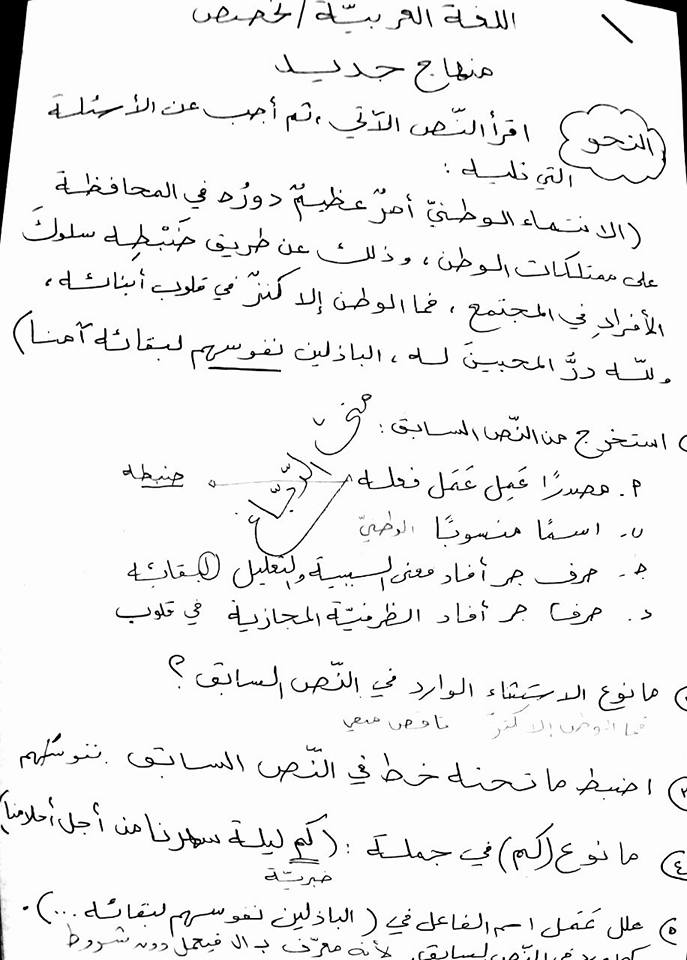 اللغة العربيّة / تخصص
١
منهاج جديد
النحو
اقرأ النّص الآتي ، ثم أجب عن الأسئلة
التي تليه :
(الانتماء الوطنيّ أمرٌ عظيمٌ دورُه في المحافظة
على ممتلكات الوطن ، وذلك عن طريق ضَبْطِه سلوكَ
الأفرادِ في المجتمع ، فما الوطن إلا كنزٌ في قلوب أبنائه ،
ولله درُّ المحبينَ له ، الباذلين نفوسهم لبقائه آمنا)
استخرج من النّص السابق :
منى الربّاع
م. مصدرًا عَمِل عَمَل فعله ضبطه
ب. اسمًا منسوبًا الوطنيّ
ج. حرف جر أفاد معنى السببية والتعليل لبقائه
د. حرف جر أفاد الظرفيّة المجازية في قلوب
ما نوع الاستثناء الوارد في النّص السابق ؟
فما الوطن إلا كنزٌ ناقص منفي
٣ اضبط ما تحته خط في النّص السابق . نفوسَهم
٤ ما نوع (كم) في جملة : (كم ليلة سهرنا من أجل أحلامنا)
خبريّة
٥ علل عَمَل اسم الفاعل في (الباذلين نفوسهم لبقائه ...) .
لأنه معرّف بـ ال فيعمل دون شروط